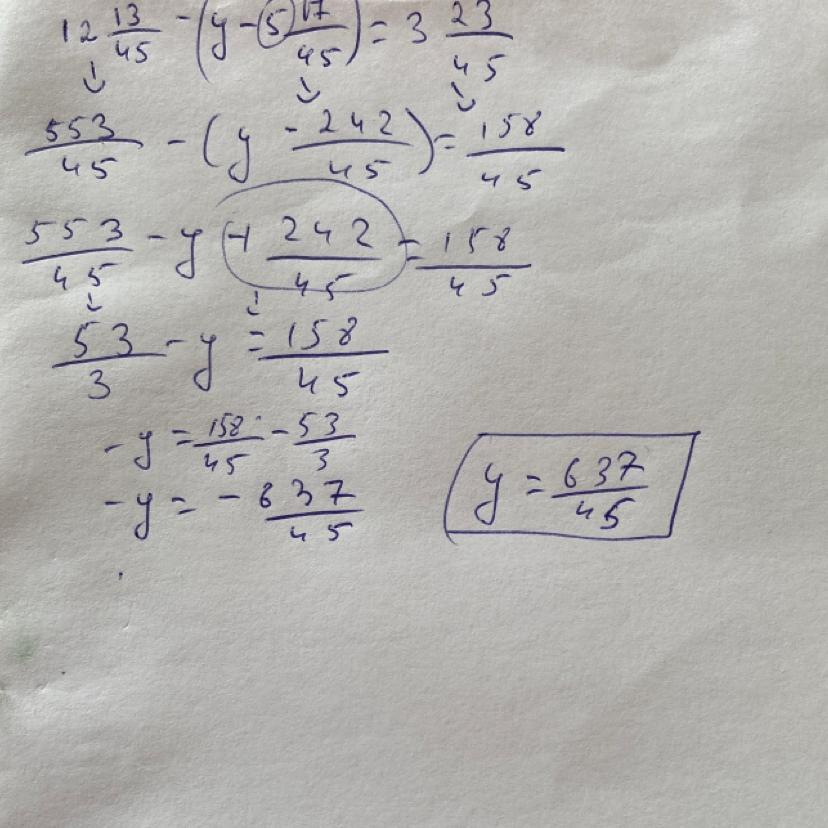 12 13/45 - (y - 5 17/45) = 3 23/45
553/45 - (y - 242/45) = 158/45
553/45 - y + 242/45 = 158/45
53/3 - y = 158/45
-y = 158/45 - 53/3
-y = - 637/45
y = 637/45